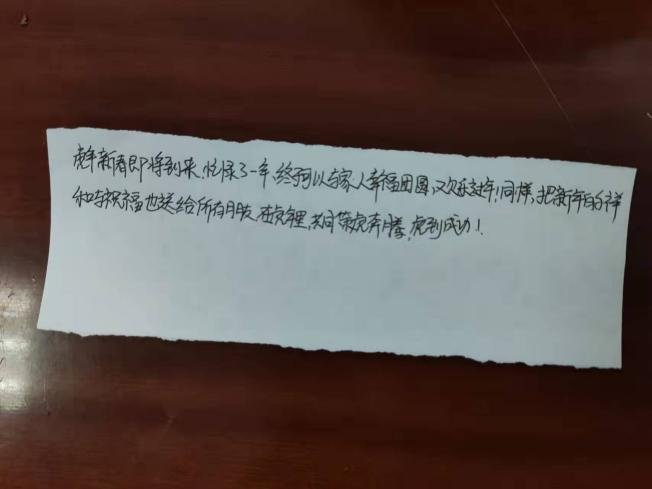 虎年新春即将到来,忙碌了一年,终于可以与家人幸福团圆,欢乐过年!同样,把新年的吉祥
和祝福也送给所有朋友,在虎年里,共同 虎奔腾,虎到成功!